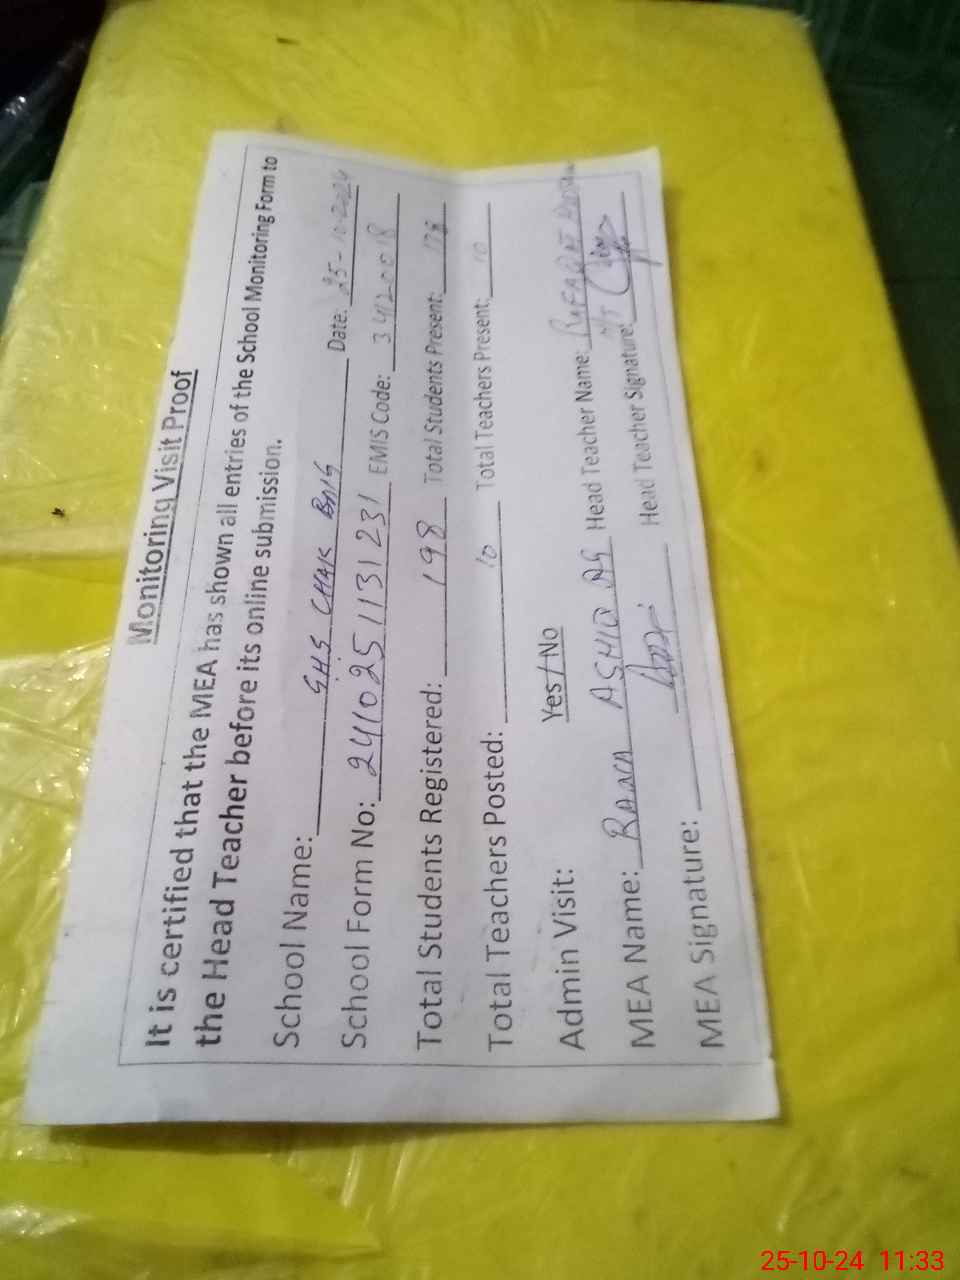 Monitoring Visit Proof
It is certified that the MEA has shown all entries of the School Monitoring Form to
the Head Teacher before its online submission.
School Name: GHS CHAK BAIG Date: 25-10-2024
School Form No: 2410251131231 EMIS Code: 34120018
Total Students Registered: 198 Total Students Present: 178
Total Teachers Posted: 10 Total Teachers Present: 10
Admin Visit: Yes / No
MEA Name: RANA ASHIQ Head Teacher Name:
MEA Signature: Head Teacher Signature:
25-10-24 11:33